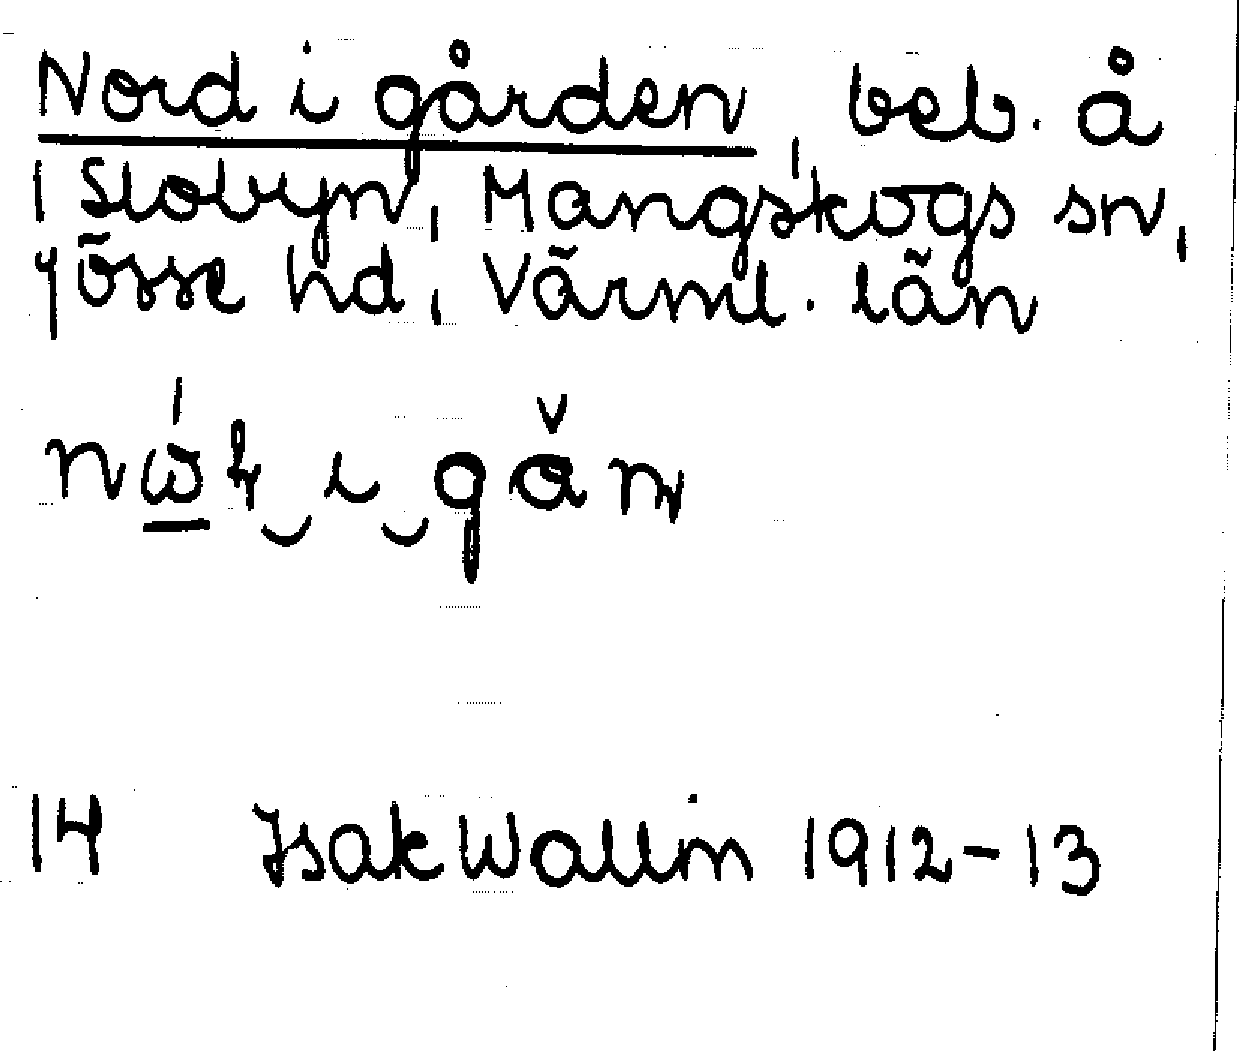 Nord i gården, beb. å
1 Slobyn, Mangskogs sn,
Jösse hd, Värml. län
14 Isak Wallin 1912-13